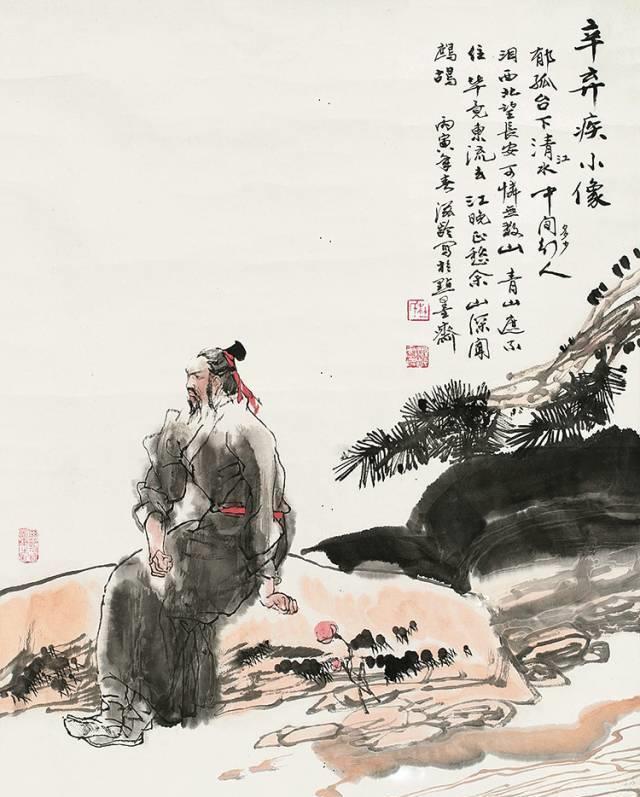 辛弃疾小像
郁孤台下清江水中间多少行人
泪西北望長安可憐无数山青山遮不
住毕竟東流去江晚正愁余山深闻
鹧鸪 丙寅年春滋龄写於點墨齋